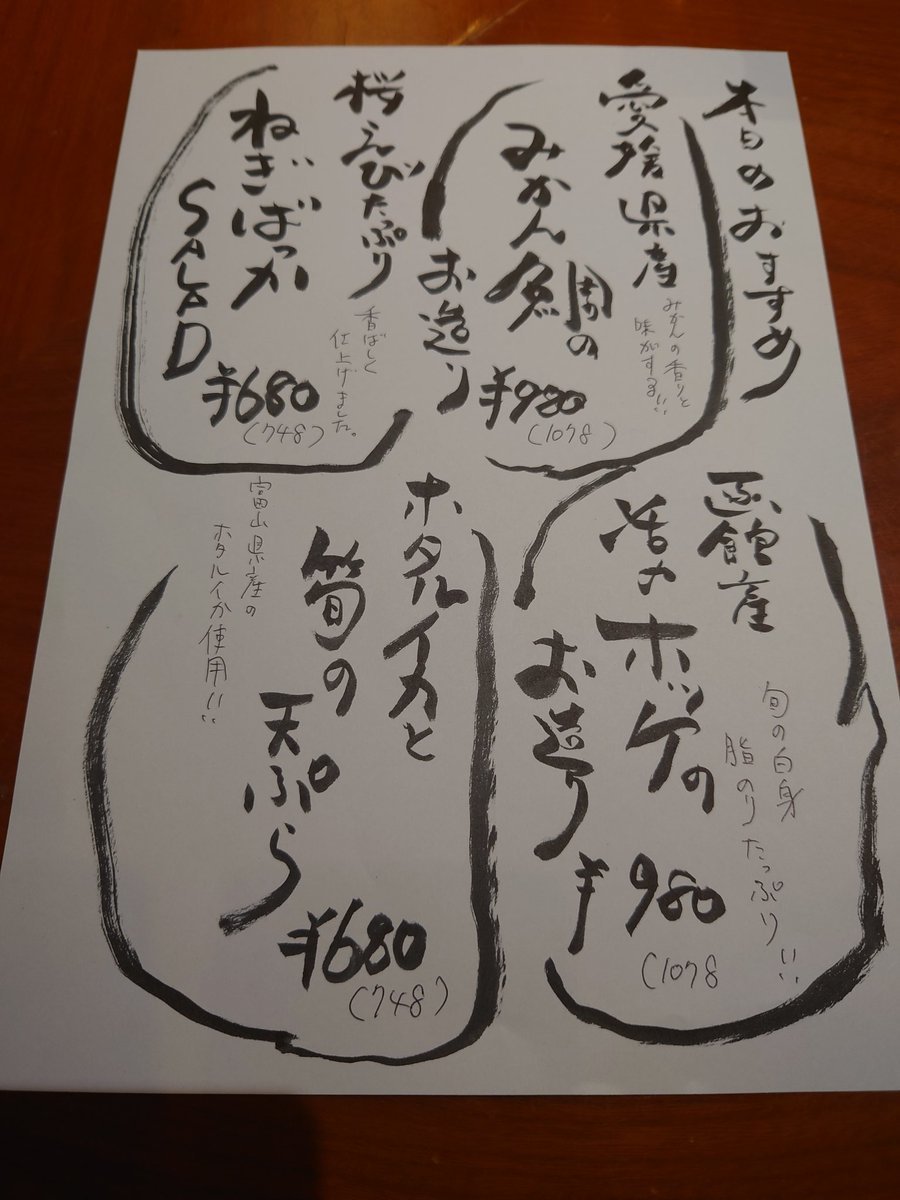 本日のおすすめ
愛媛県産
みかん鯛の
お造り
みかんの香りと
味がする!!
¥980
(1078)
桜えびたっぷり
ねぎばっか
SALAD
香ばしく
仕上げました。
¥680
(748)
函館産
活〆ホッケの
お造り
旬の白身
脂のりたっぷり!!
¥980
(1078
ホタルイカと
筍の
天ぷら
富山県産の
ホタルイカ使用!!
¥680
(748)